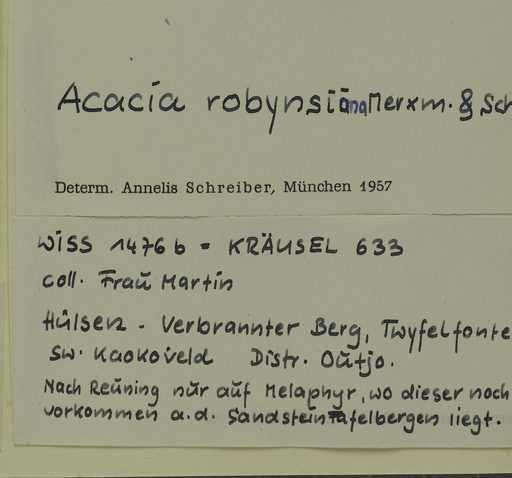 Acacia robynsiana Merxm. & Sch
Determ. Annelis Schreiber, München 1957
WISS 1476 b = KRÄUSEL 633
coll. Frau Martin
Hülsen - Verbrannter Berg, Twyfelfonte
SW. Kaokoveld Distr. Outjo.
Nach Reuning nur auf Melaphyr, wo dieser noch
vorkommen a.d. Sandstein Tafelbergen liegt.